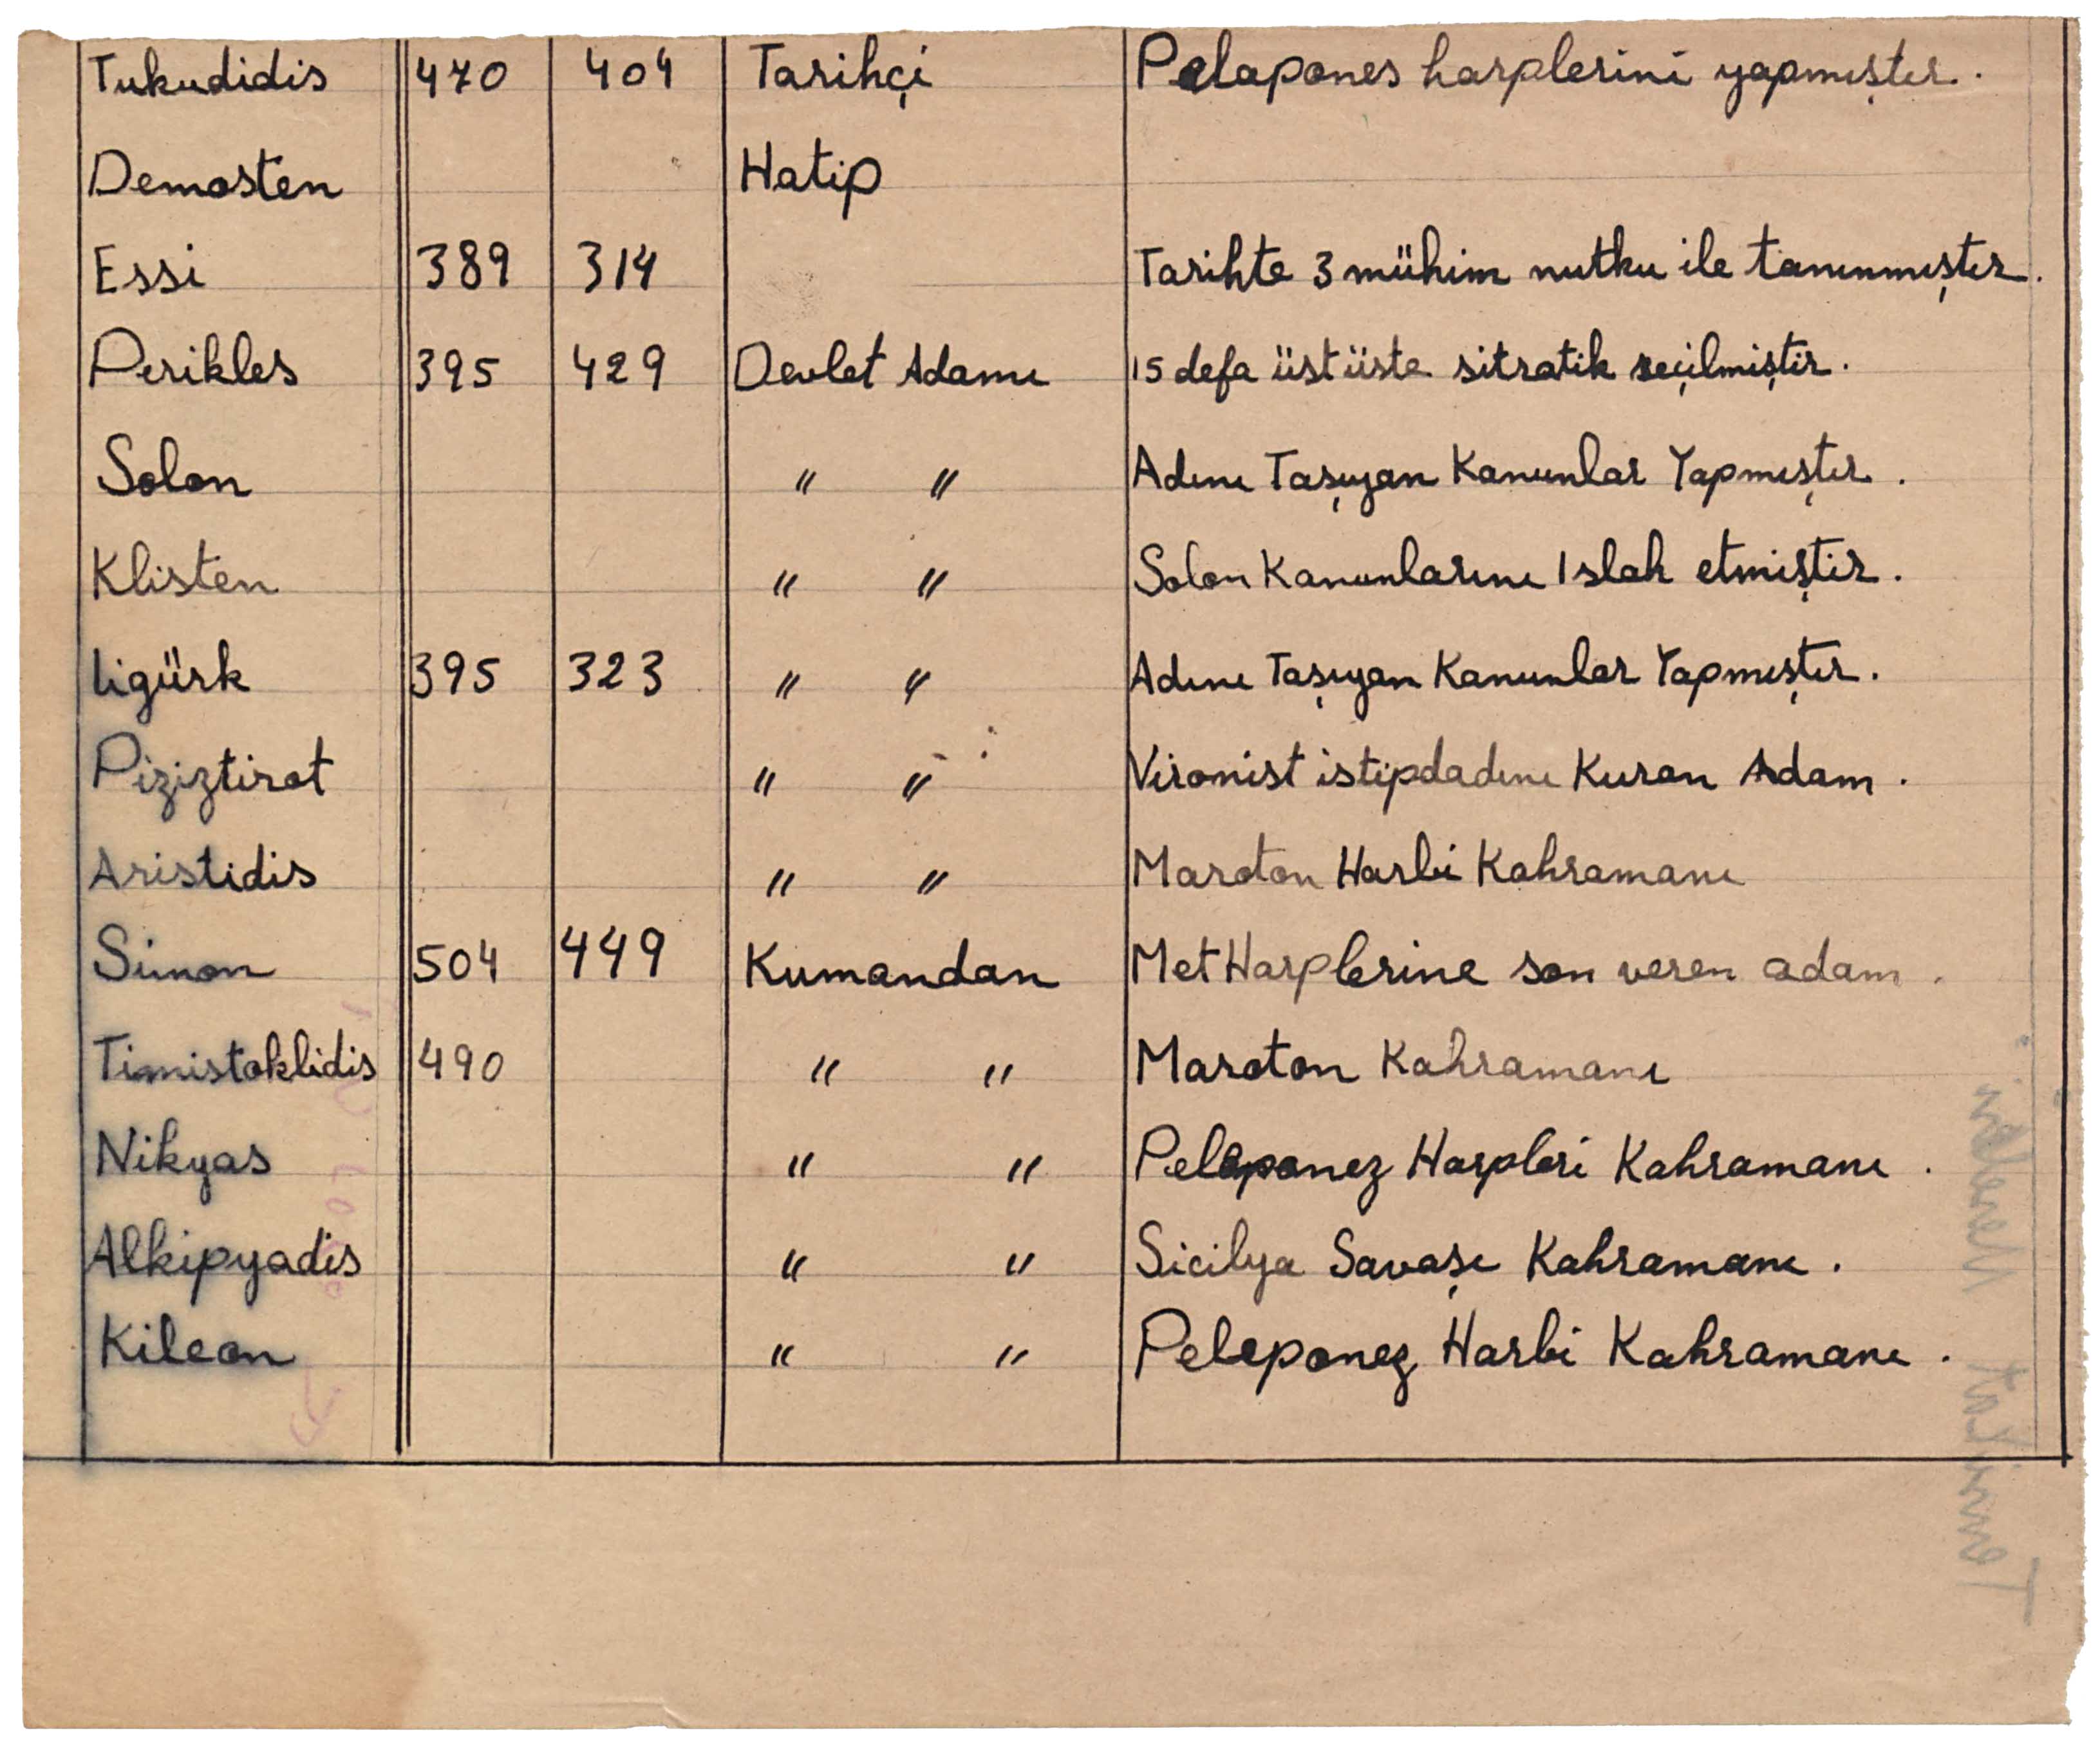 Tukudidis 470 404 Tarihçi Pelapones harplerini yapmıştır.
Demosten Hatip
Essi 389 314 Tarihte 3 mühim nutku ile tanınmıştır.
Perikles 395 429 Devlet Adamı 15 defa üstüste sitratik seçilmiştir.
Solon " " Adını Taşıyan Kanunlar Yapmıştır.
Klisten " " Solon Kanunlarını Islah etmiştir.
Ligürk 395 323 " " Adını Taşıyan Kanunlar Yapmıştır.
Piziztirat " " Viranist istipdadını Kuran Adam.
Aristidis " " Maraton Harbi Kahramanı
Simon 504 449 Kumandan Met Harplerine son veren adam.
Timistoklidis 490 " " Maraton Kahramanı
Nikyas " " Peleponez Harpleri Kahramanı.
Alkipyadis " " Sicilya Savaşı Kahramanı.
Kileon " " Peleponez Harbi Kahramanı.